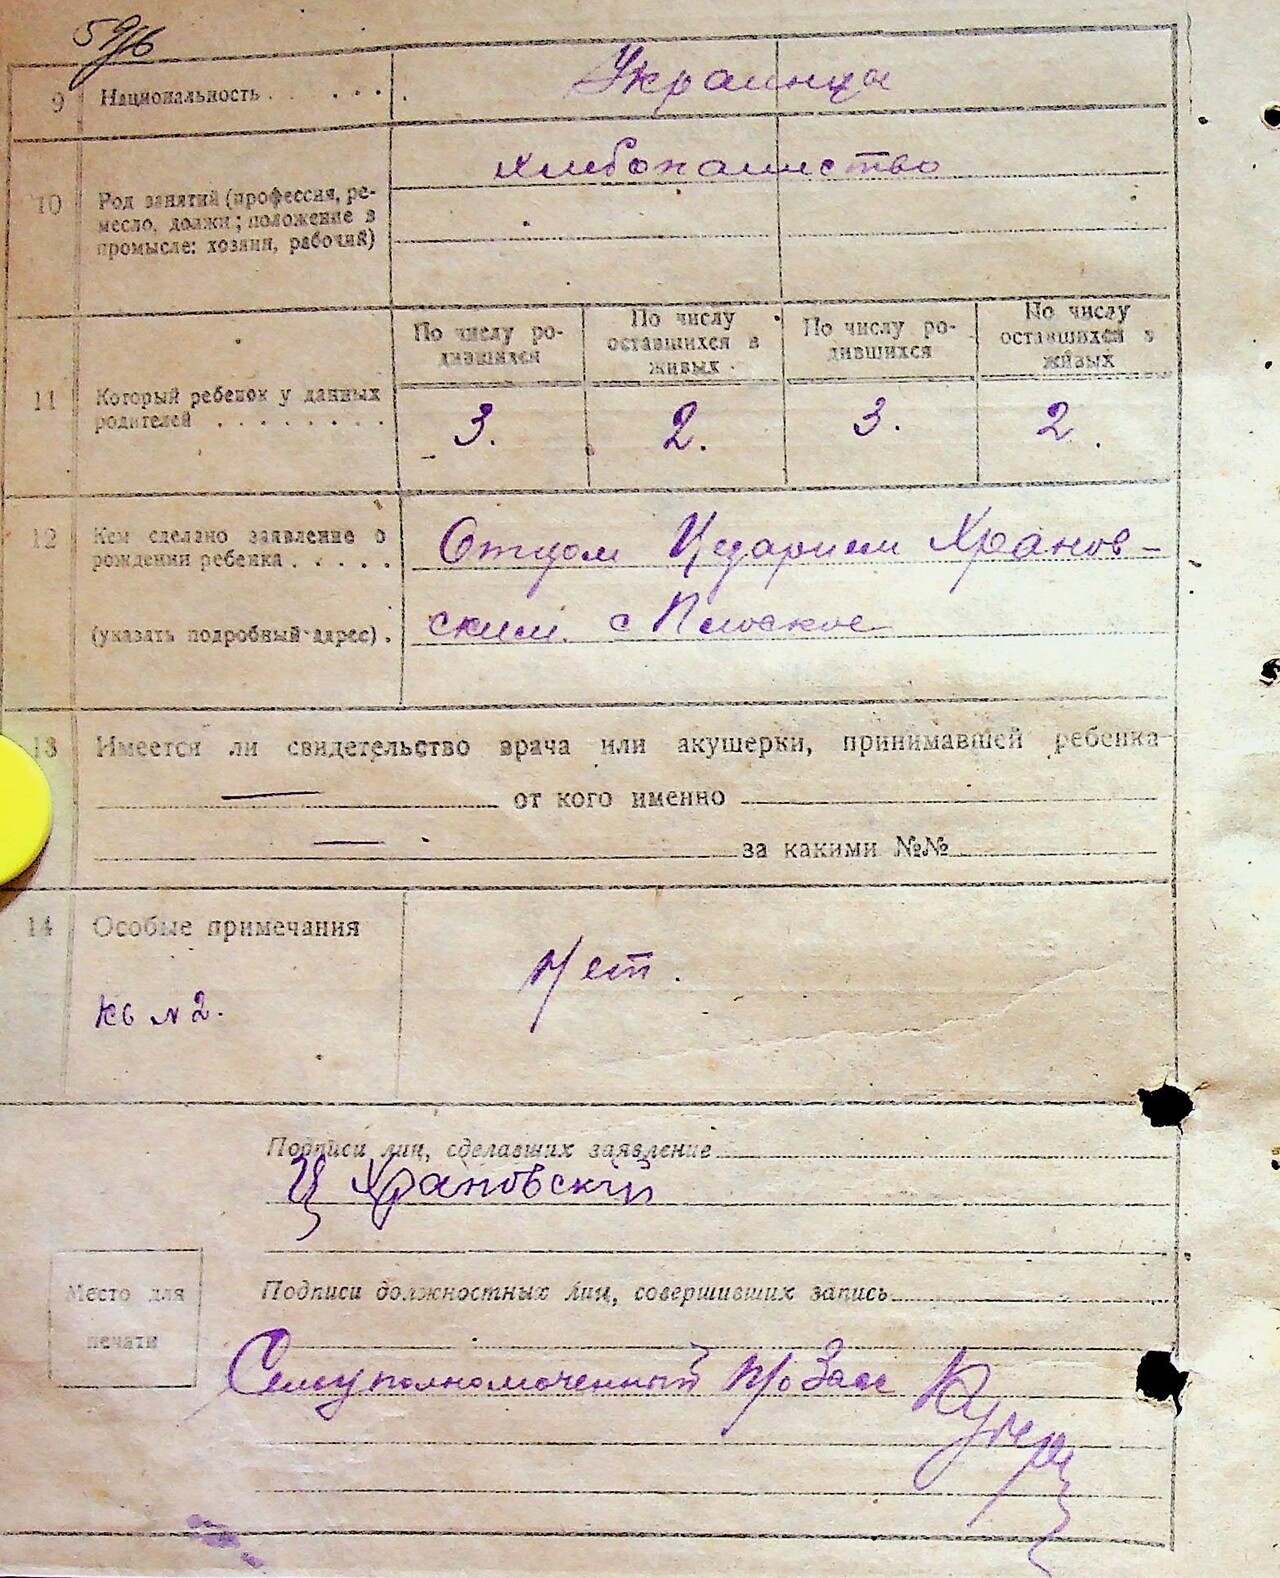 9 Национальность
Украинцы
10 Род занятий (профессия, ре-
месло, должн; положение в
промысле: хозяин, рабочий)
хлебопашество
11 Который ребенок у данных
родителей
По числу ро-
дившихся
По числу
оставшихся в
живых
По числу ро-
дившихся
По числу
оставшихся в
живых
3. 2. 3. 2.
12 Кем сделано заявление о
рождении ребенка
(указать подробный адрес).
Отцом Хранов-
ским. с Плоское
13 Имеется ли свидетельство врача или акушерки, принимавшей ребенка
от кого именно
за какими №№
14 Особые примечания
Нет.
кв N 2.
Подписи лиц, сделавших заявление
Ц Храновский
Место для
печати
Подписи должностных лиц, совершивших запись
Сельуполномоченный п/о Загс